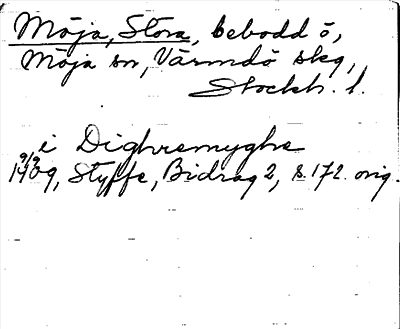 Möja, Stora, bebodd ö,
Möja sn, Värmdö skg,
Stockh. l.
i Dighremyghe
9/9
1409, Styffe, Bidrag 2, s. 172. orig.